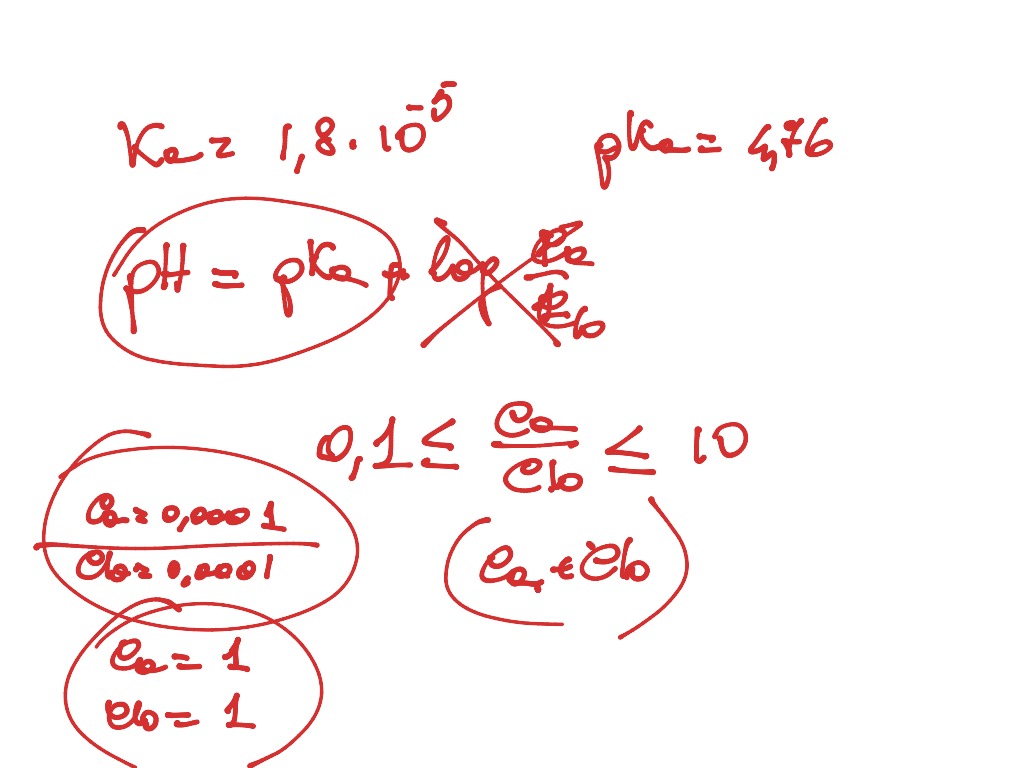 Ka = 1,8 · 10⁻⁵
pKa = 4,76
pH = pKa + log Ca/Cb
0,1 ≤ Ca/Cb ≤ 10
Ca = 0,0001
Cb = 0,0001
Ca + Cb
Ca = 1
Cb = 1